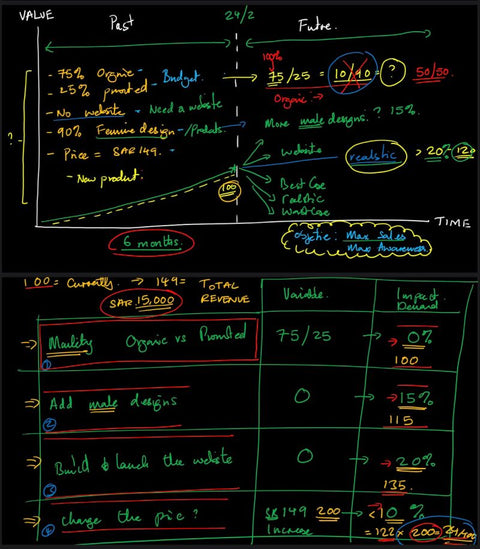 VALUE
Past
24/2
Future.
- 75% Organic -
- 25% promoted
Budget.
- No website - Need a website
- 90% Femine design - /Products
- Price = SAR 149.
- New product.
?
100%
75/25 = 10/90 = ?
50/50.
Organic →
More male designs. ? 15%.
website
realstic
> 20% 120
100
Best Case
realstic
Worst Case
6 months.
TIME
Max Sales
Max Awareness
100 = Currently → 149 = TOTAL REVENUE
SAR 15,000
Variable
Impact Demand
Organic vs Promoted
75/25
→ 0%
100
1
Add male designs
0
→ 15%
115
2
Build & launch the website
0
→ 20%
135.
3
change the price?
149 200
Increase
<10 %
= 122 × 200 =
4